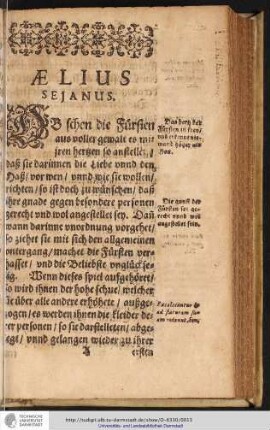 ÆLIUS
SEJANUS.
OB schon die Fürsten
aus voller gewalt es mit
jren hertzen so anstellē /
daß sie darinnen die Liebe vnnd den
Haß / vor wen / vnnd wie sie wollen /
richten / so ist doch zu wünschen / daß
ihre gnade gegen besondere personen
gerecht vnd wol angestellet sey. Dañ
wann darinne vnordnung vorgehet /
so ziehet sie mit sich den allgemeinen
vntergang / machet die Fürsten ver-
hasset / vnd die Beliebte vnglückse-
lig. Wenn dieses spiel auffgehöret /
so wird ihnen der hohe schue / welcher
sie über alle andere erhöhete / außge-
zogen / es werden ihnen die kleider de-
rer personen / so sie darstelleten / abge-
legt / vnnd gelangen wieder zu ihrer
A
ersten
Das hertz der
Fürsten ist frey /
Die gunst der
Fürsten sey ge-
recht vnnd wol
angestellet seyn.
TECHNISCHE
UNIVERSITÄT
DARMSTADT
Universitäts- und Landesbibliothek Darmstadt